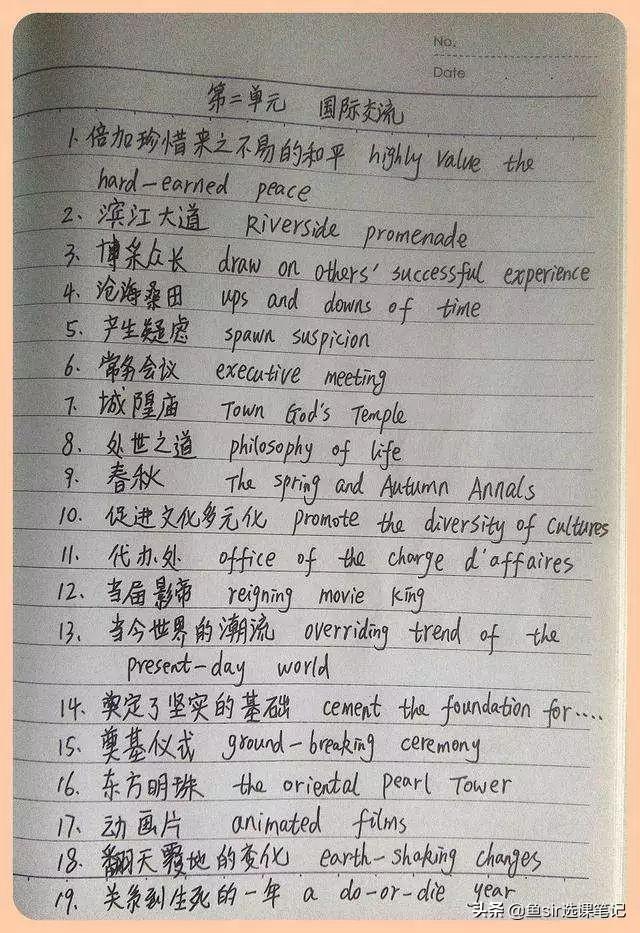 No.
Date
第二单元 国际交流
1、倍加珍惜来之不易的和平 highly value the
hard-earned peace
2、滨江大道 Riverside promenade
3、博采众长 draw on others' successful experience
4、沧海桑田 ups and downs of time
5、产生疑虑 spawn suspicion
6、常务会议 executive meeting
7、城隍庙 Town God's Temple
8、处世之道 philosophy of life
9、春秋 The spring and Autumn Annals
10、促进文化多元化 promote the diversity of cultures
11、代办处 office of the charge d'affaires
12、当届影帝 reigning movie king
13、当今世界的潮流 overriding trend of the
present-day world
14、奠定了坚实的基础 cement the foundation for....
15、奠基仪式 ground-breaking ceremony
16、东方明珠 the oriental pearl Tower
17、动画片 animated films
18、翻天覆地的变化 earth-shaking changes
19、关系到生死的一年 a do-or-die year
头条 @鱼sir选课笔记